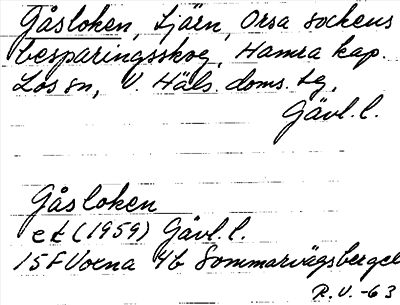 Gåsloken, tjärn, Orsa sockens
besparingsskog, Hamra kap.
Los sn, V. Häls. doms. tg,
Gävl. l.
Gåsloken
ek (1959) Gävl. l.
15F Voxna 4b Sommarvägsberget
R. V. -63